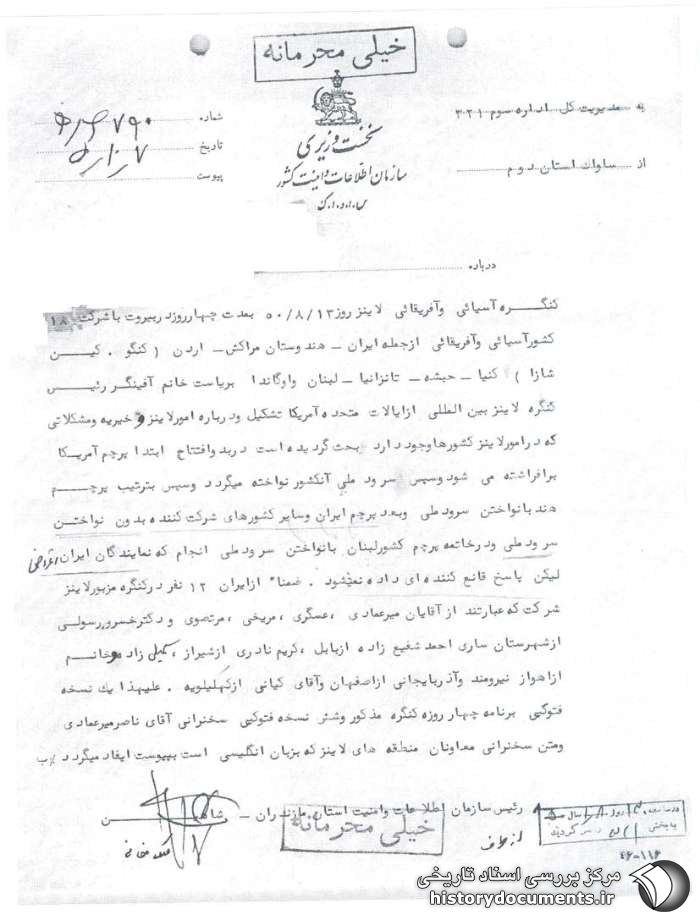 خیلی محرمانه
به مدیریت کل اداره سوم ۳۲۱
از ساواک استان دوم
نخست وزیری
سازمان اطلاعات و امنیت کشور
س.ا.و.ا.ک
شماره
تاریخ
پیوست
درباره
کنگره آسیائی وآفریقائی لاینز روز ۵۰/۸/۱۳ بمدت چهارروزدربیروت باشرکت ۱۸
کشورآسیائی وآفریقائی ازجمله ایران - هندوستان مراکش - اردن ( کنگو . کین
شازا ) کنیا - حبشه - تانزانیا - لبنان واوگاندا بریاست خانم آفینگر رئیس
کنگره لاینز بین المللی ازایالات متحده آمریکا تشکیل ودرباره امورلاینز و خیریه ومشکلاتی
که درامورلاینز کشورهاوجود دارد بحث گردیده است دربدوافتتاح ابتدا پرچم آمریکا
برافراشته می شود وسپس سرود ملی آنکشور نواخته میگردد وسپس بترتیب پرچم
هند بانواختن سرودملی وبعد پرچم ایران وسایر کشورهای شرکت کننده بدون نواختن
سرود ملی ودرخاتمه پرچم کشورلبنان بانواختن سرود ملی انجام که نمایندگان ایران اعتراض
لیکن پاسخ قانع کننده ای داده نمیشود . ضمنا" ازایران ۱۲ نفر درکنگره مزبورلاینز
شرکت که عبارتند از آقایان میرعمادی ، عسگری ، مریخی ، مرتضوی و دکترخسرو رسولی
ازشهرستان ساری احمد شفیع زاده ازبابل ، کریم نادری ازشیراز ، کمیل زاده وخانم
ازاهواز نیرومند وآذربایجانی ازاصفهان وآقای کیانی ازکهلیلویه . علیهذا یک نسخه
فتوکپی برنامه چهار روزه کنگره مذکور وشش نسخه فتوکپی سخنرانی آقای ناصرمیرعمادی
ومتن سخنرانی معاونان منطقه های لاینز که بزبان انگلیسی است بپیوست ایفاد میگردد
رئیس سازمان اطلاعات وامنیت استان مازندران - شاهین
از طرف
خیلی محرمانه
۴۶-۱۱۶
مرکز بررسی اسناد تاریخی
historydocuments.ir